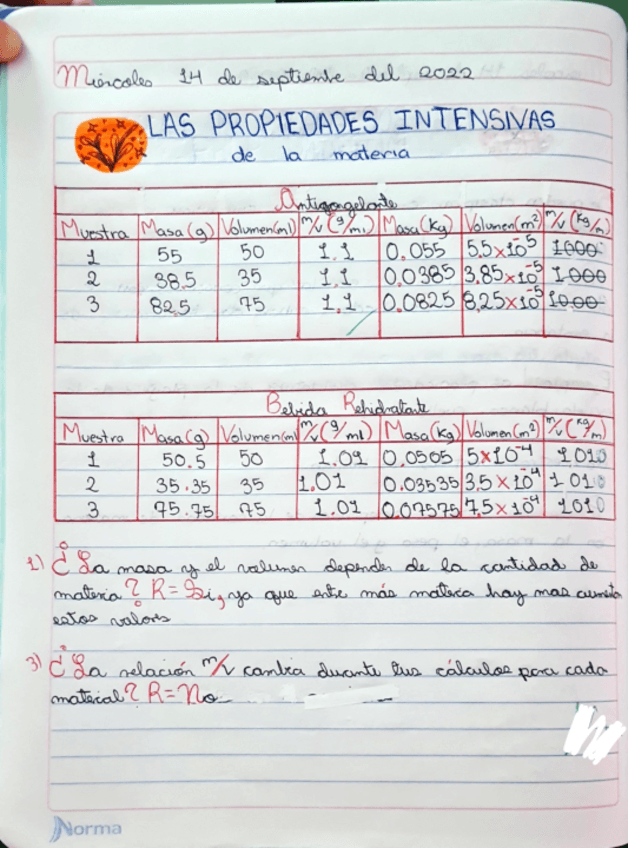 Miércoles 14 de septiembre del 2022
LAS PROPIEDADES INTENSIVAS
de la materia
Anticongelante
Muestra Masa(g) Volumen(ml) m/v (g/m) Masa(Kg) Volumen(m²) m/v (Kg/m)
1 55 50 1.1 0.055 5.5x10⁻⁵ 1000
2 38.5 35 1.1 0.0385 3.85x10⁻⁵ 1.000
3 82.5 75 1.1 0.0825 8,25x10⁻⁵ 1000
Bebida Rehidratante
Muestra Masa(g) Volumen(ml) m/v (g/ml) Masa(Kg) Volumen(m²) m/v (Kg/m)
1 50.5 50 1.01 0.0505 5x10⁻⁴ 1010
2 35.35 35 1.01 0.03535 3.5x10⁻⁴ 1010
3 75.75 75 1.01 0.07575 7.5x10⁻⁴ 1010
1) ¿La masa y el volumen depender de la cantidad de
materia? R= Si, ya que entre más materia hay mas aumenta
estos valores
3) ¿La relación m/v cambia durante tus cálculos para cada
material? R= No
Norma